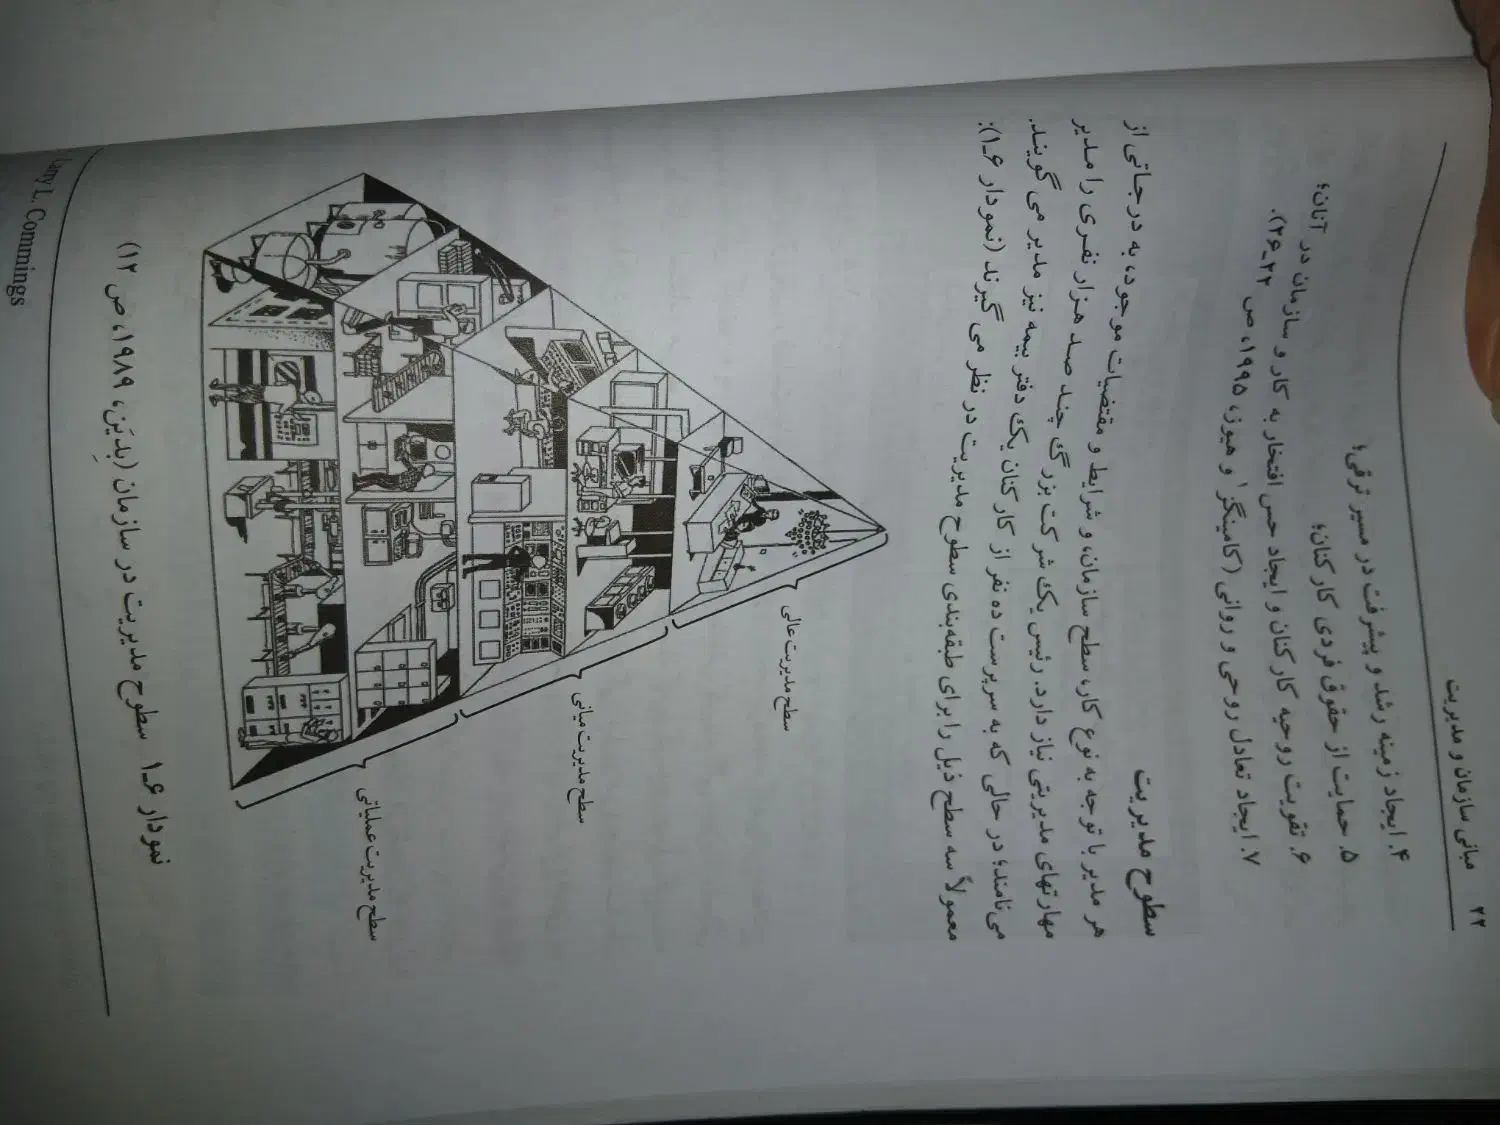 ۲۲ مبانی سازمان و مدیریت
۴. ایجاد زمینه رشد و پیشرفت در مسیر ترقی؛
۵. حمایت از حقوق فردی کارکنان؛
۶. تقویت روحیه کارکنان و ایجاد حس افتخار به کار و سازمان در آنان؛
۷. ایجاد تعادل روحی و روانی (کامینگز۱ و هیوز، ۱۹۹۵، ص ۲۲ـ۲۶).
سطوح مدیریت
هر مدیر با توجه به نوع کار، سطح سازمان، و شرایط و مقتضیات موجود، به درجاتی از
مهارتهای مدیریتی نیاز دارد. رئیس یک شرکت بزرگ چند صد هزار نفری را مدیر
می‌نامند؛ در حالی که به سرپرست ده نفر از کارکنان یک دفتر بیمه نیز مدیر می‌گویند.
معمولاً سه سطح ذیل را برای طبقه‌بندی سطوح مدیریت در نظر می‌گیرند (نمودار ۶ـ۱):
سطح مدیریت عالی
سطح مدیریت میانی
سطح مدیریت عملیاتی
نمودار ۶ـ۱ سطوح مدیریت در سازمان (بِدیَن، ۱۹۸۹، ص ۱۲)
Larry L. Commings